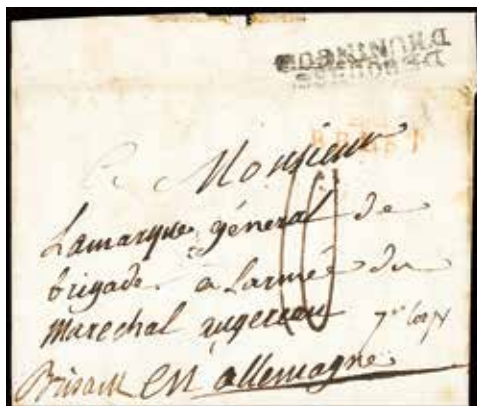 DÉBOURSÉ
D'HUNINGUE
BREST
A Monsieur
Lamarque général de
brigade a Larmée du
marechal augereau 7e corps
en allemagne